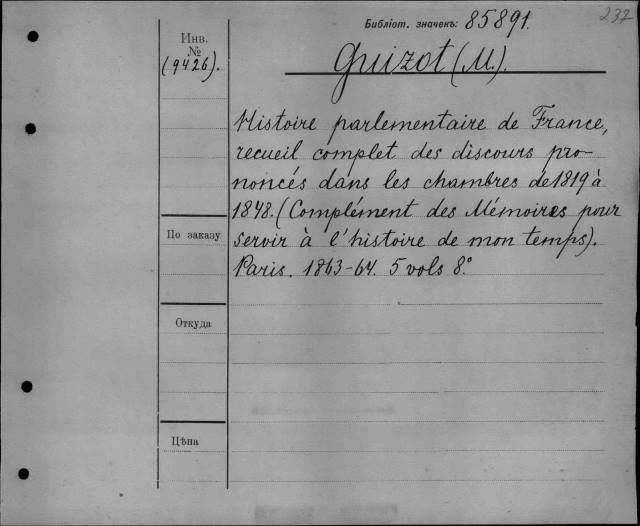 237
Библіот. значекъ: 85891.
Инв.
№
(9426).
Guizot (M.).
Histoire parlementaire de France,
recueil complet des discours pro-
noncés dans les chambres de 1819 à
1848. (Complément des Mémoires pour
servir à l'histoire de mon temps).
Paris. 1863-64. 5 vols 8.°
По заказу
Откуда
Цѣна